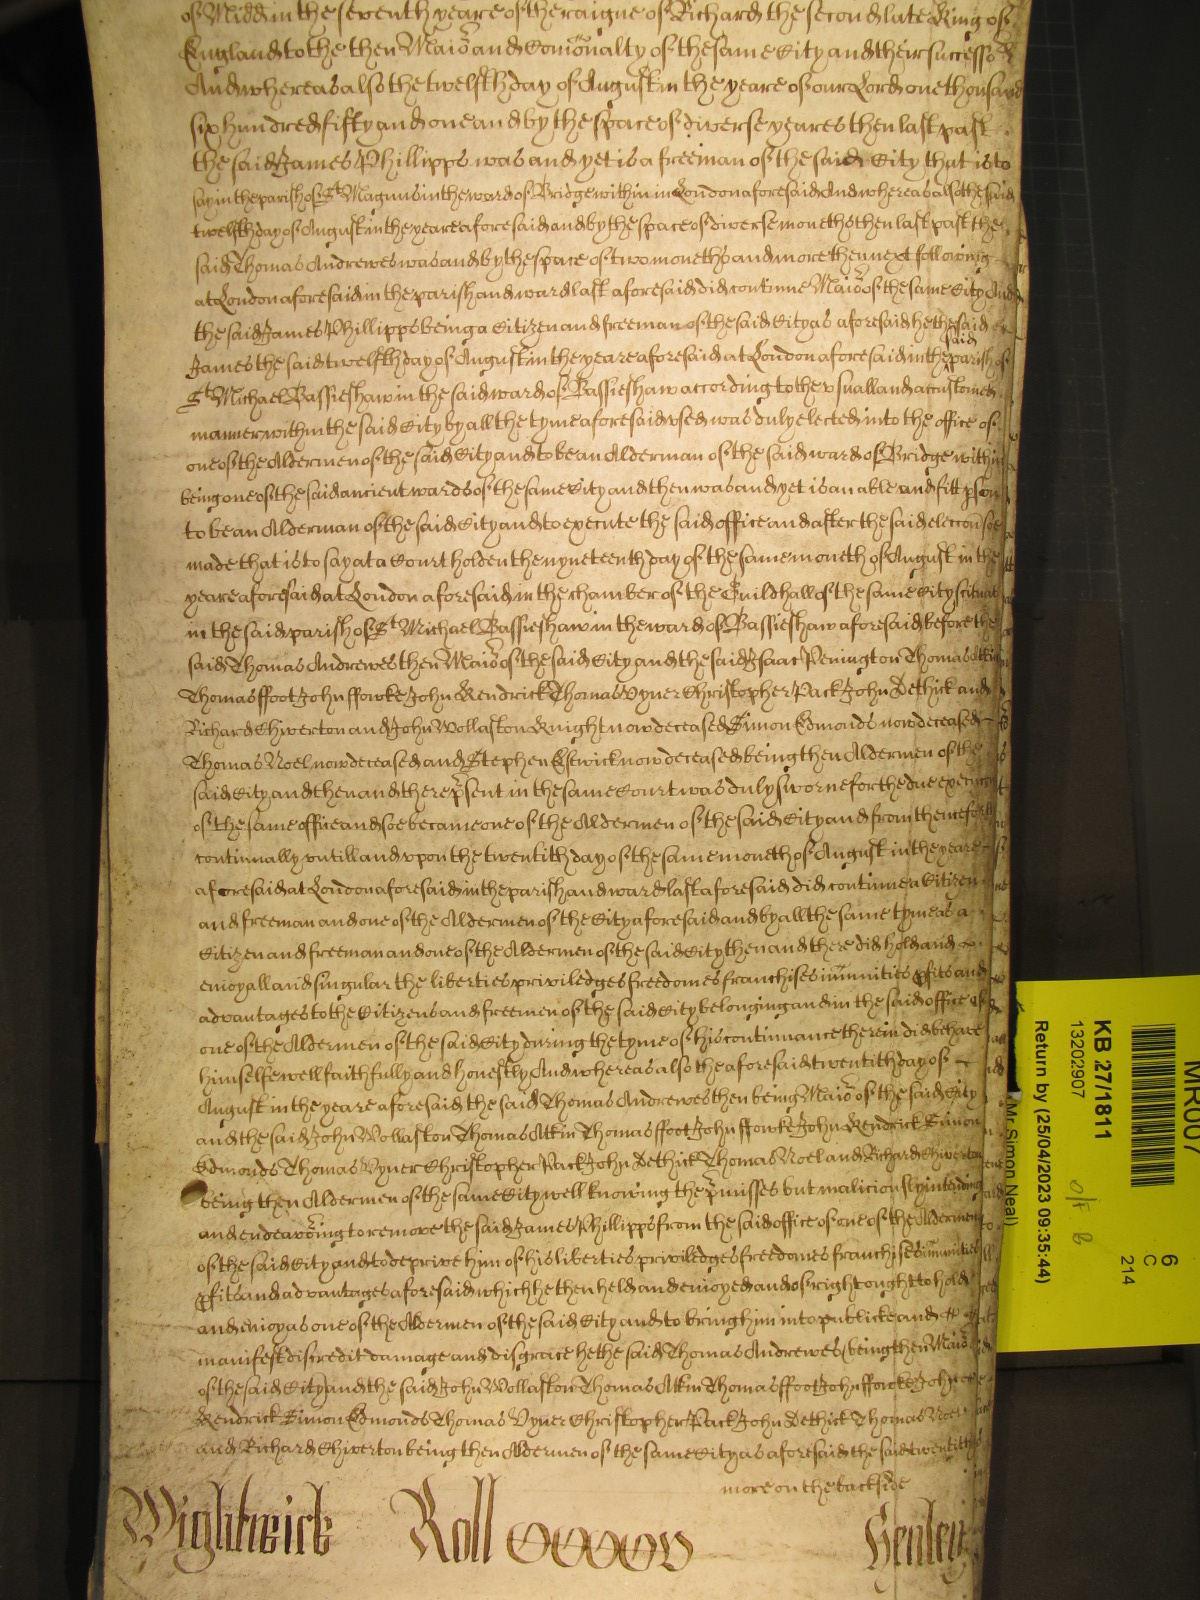 of Midd in the seventh yeare of the raigne of Richard the second late King of
England to the then Maior and Comonalty of the same City and their successors
And whereas also the twelfth day of August in the yeare of our Lord one thousand
six hundred fifty and one and by the space of diverse yeares then last past
the said James Phillipps was and yet is a freeman of the said City that is to
say in the parish of St Magnus in the ward of Bridge within in London aforesaid And whereas also the said
twelfth day of August in the yeare aforesaid and by the space of diverse moneths then last past the
said Thomas Andrewes was and by the space of two moneths and more then next following
at London aforesaid in the parish and ward last aforesaid did continue Maior of the same City And
the said James Phillipps being a Citizen and freeman of the said City as aforesaid he the said
James the said twelfth day of August in the yeare aforesaid at London aforesaid in the said parish of
St Michael Bassieshaw in the said ward of Bassieshaw according to the vsuall and accustomed
manner within the said City by all the tyme aforesaid vsed was duly elected into the office of
one of the Aldermen of the said City and to be an Alderman of the said ward of Bridge within
being one of the said ancient wards of the same City and then was and yet is an able and fitt pson
to be an Alderman of the said City and to execute the said office and after the said eleccon soe
made that is to say at a Court holden the nyneteenth day of the same moneth of August in the
yeare aforesaid at London aforesaid in the chamber of the Guildhall of the same City scituate
in the said parish of St Michael Bassieshaw in the ward of Bassieshaw aforesaid before the
said Thomas Andrewes then Maior of the said City and the said Isaac Penington Thomas Atkin
Thomas ffoot John ffowke John Kendrick Thomas Vyner Christopher Pack John Dethick and
Richard Chiverton and John Wollaston Knight now deceased Simon Edmonds now deceased
Thomas Noel now deceased and Stephen Estwick now deceased being then Aldermen of the
said City and then and there psent in the same Court was duly sworne for the due execucon
of the same office and soe became one of the Aldermen of the said City and from thenceforth
continually vntill and vpon the twentith day of the same moneth of August in the yeare
aforesaid at London aforesaid in the parish and ward last aforesaid did continue a Citizen
and freeman and one of the Aldermen of the City aforesaid and by all the same tyme as a
Citizen and freeman and one of the Aldermen of the said City then and there did hold and
enioy all and singular the liberties priviledges freedomes franchises imunities pfits and
advantages to the Citizens and freemen of the said City belonging and in the said office of
one of the Aldermen of the said City during the tyme of his continuance therein did behave
himselfe well faithfully and honestly And whereas also the aforesaid twentith day of
August in the yeare aforesaid the said Thomas Andrewes then being Maior of the said City
and the said John Wollaston Thomas Atkin Thomas ffoot John ffowke John Kendrick Simon
Edmonds Thomas Vyner Christopher Pack John Dethick Thomas Noel and Richard Chiverton
being then Aldermen of the same City well knowing the pmisses but maliciously intending
and endeavoring to remove the said James Phillipps from the said office of one of the Aldermen
of the said City and to deprive him of his liberties priviledges freedomes franchises imunities
pfits and advantages aforesaid which he then held and enioyed and of right ought to hold
and enioy as one of the Aldermen of the said City and to bring him into publicke and
manifest discredit damage and disgrace he the said Thomas Andrewes (being then Maior
of the said City) and the said John Wollaston Thomas Atkin Thomas ffoot John ffowke John
Kendrick Simon Edmonds Thomas Vyner Christopher Pack John Dethick Thomas Noel
and Richard Chiverton being then Aldermen of the same City as aforesaid the said twentith
more on the backside
Wightwick Roll CCCCCV Henley
KB 27/1811
13202907
Return by (25/04/2023 09:35:44)
Mr Simon Neal)
6
C
214